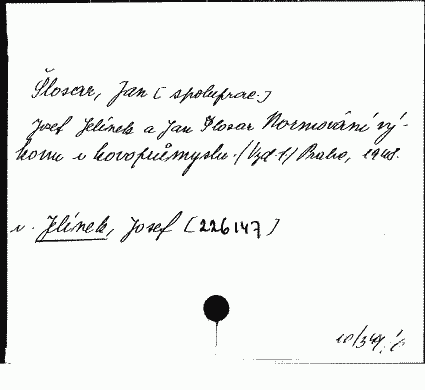 Šlosar, Jan [spoluprac.]
Josef Jelínek a Jan Šlosar Normování vý-
konu v kovoprůmyslu. (Vyd. 1) Praha, 1948.
v. Jelínek, Josef [226147]